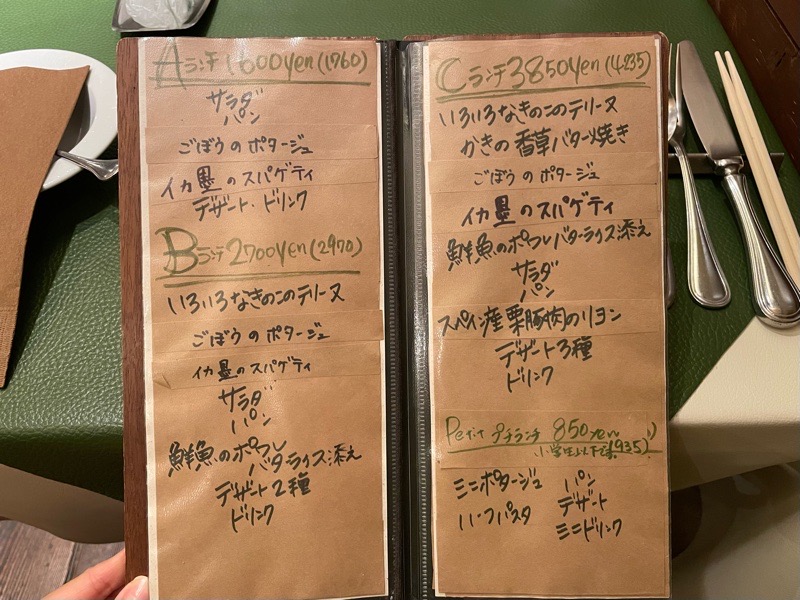 Aランチ 1600yen(1760)
サラダ
パン
ごぼうのポタージュ
イカ墨のスパゲティ
デザート・ドリンク
Bランチ2700yen(2970)
いろいろなきのこのテリーヌ
ごぼうのポタージュ
イカ墨のスパゲティ
サラダ
パン
鮮魚のポワレ
バターライス添え
デザート2種
ドリンク
Cランチ3850yen(4235)
いろいろなきのこのテリーヌ
かきの香草バター焼き
ごぼうのポタージュ
イカ墨のスパゲティ
鮮魚のポワレバターライス添え
サラダ
パン
スペイン産栗豚肉のリヨン
デザート3種
ドリンク
Petit プチランチ 850yen
(935)
ミニポタージュ
ハーフパスタ
パン
デザート
ミニドリンク